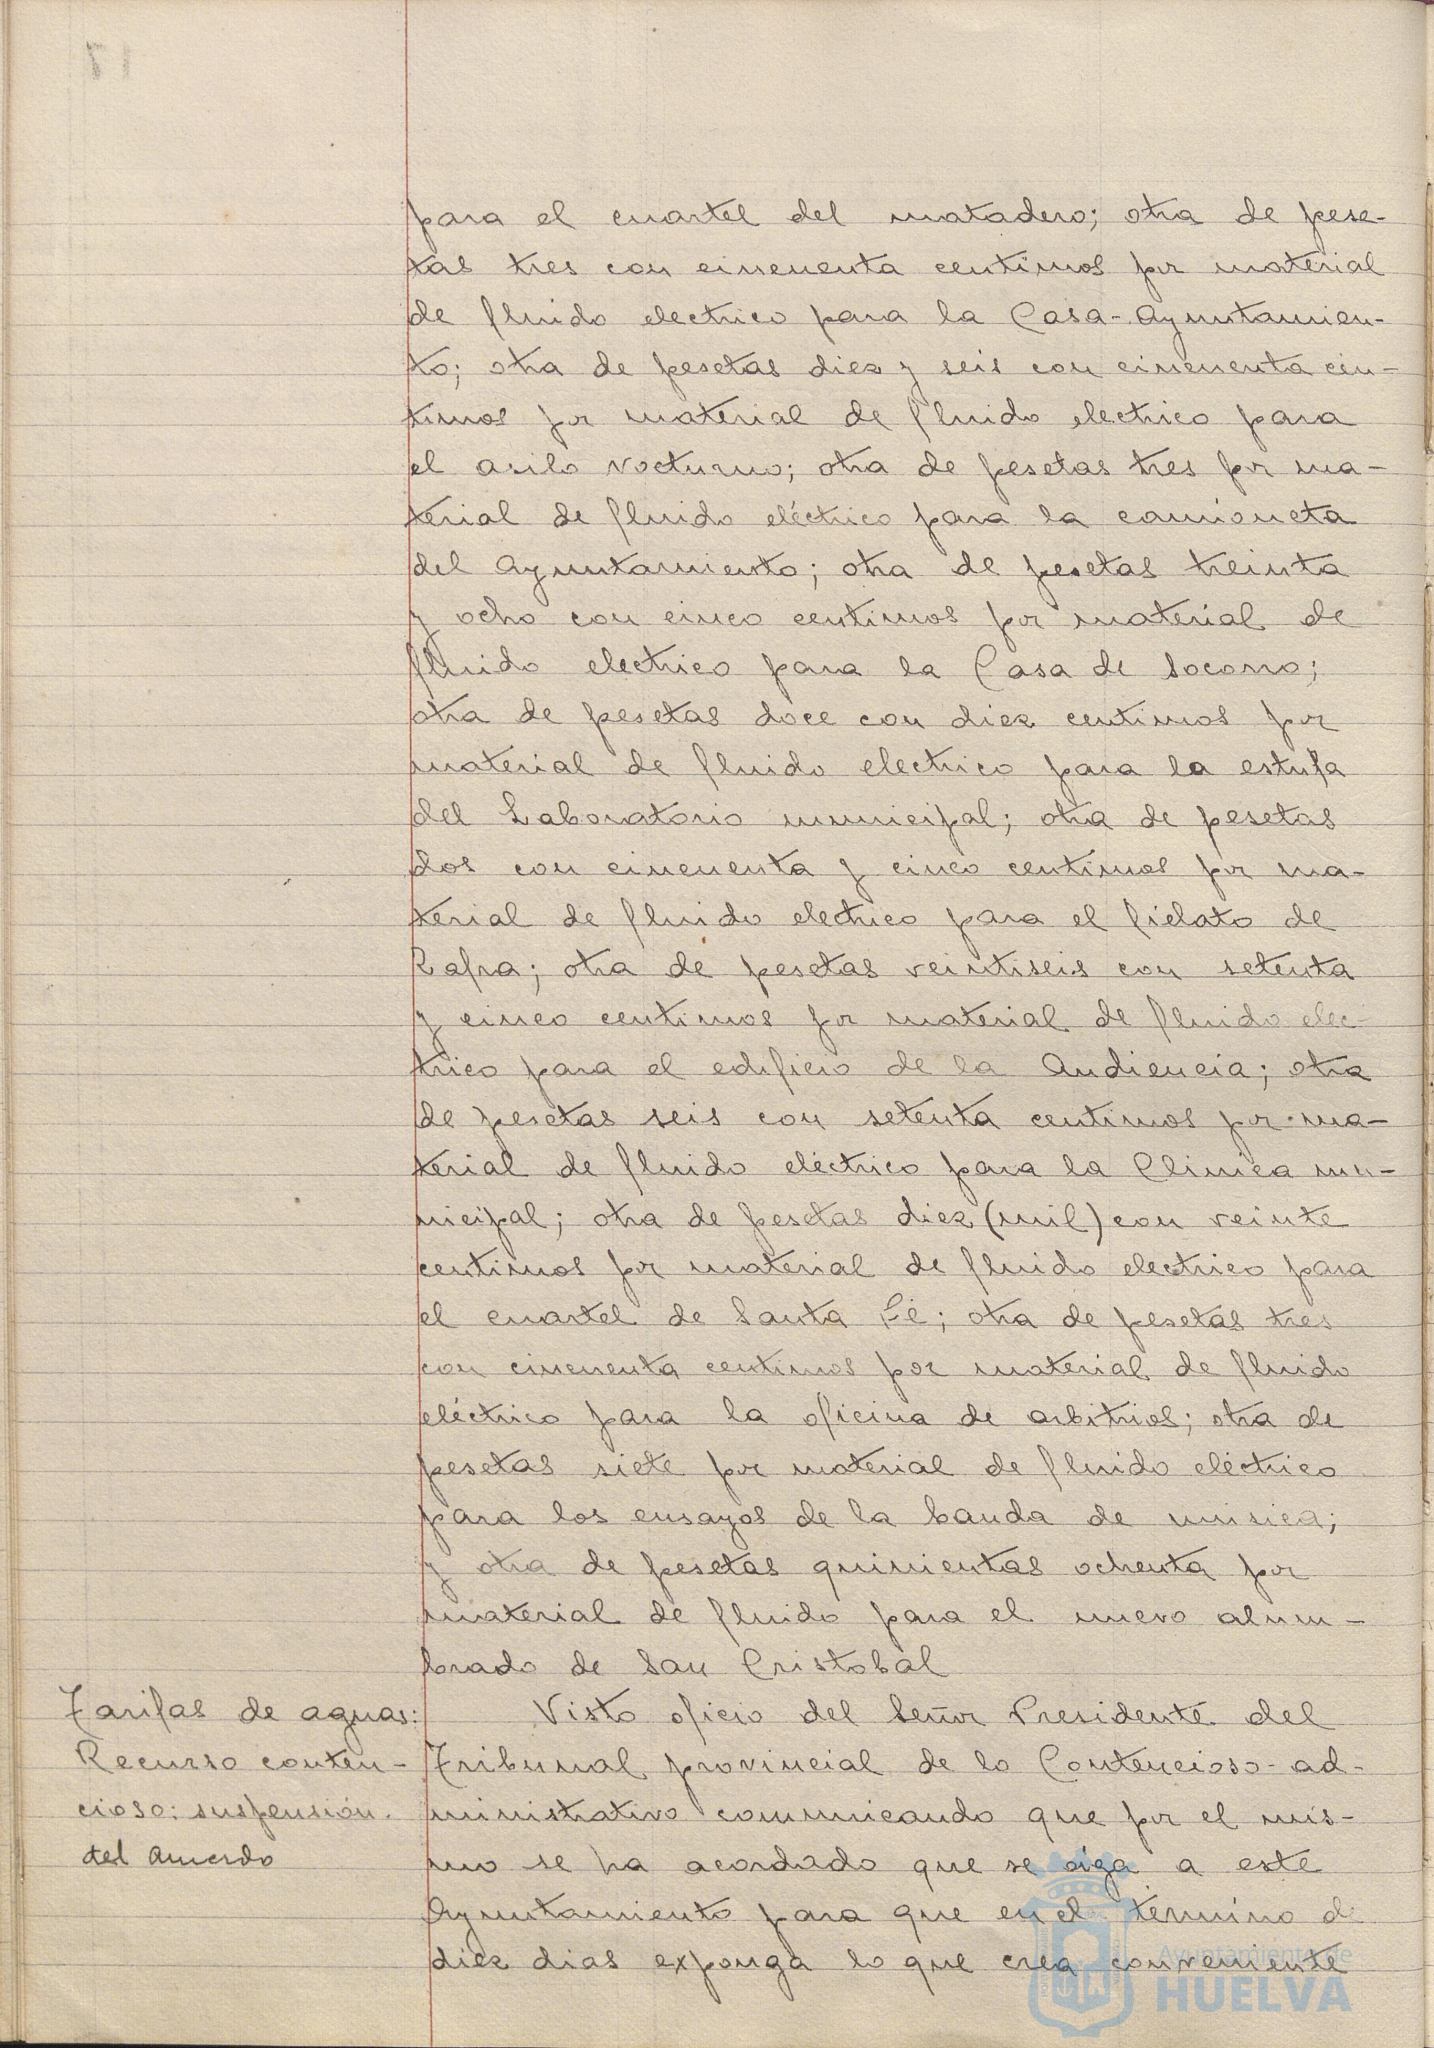 para el cuartel del matadero; otra de pese-
tas tres con cincuenta centimos por material
de fluido electrico para la Casa-Ayuntamien-
to; otra de pesetas diez y seis con cincuenta cen-
timos por material de fluido electrico para
el asilo nocturno; otra de pesetas tres por ma-
terial de fluido eléctrico para la camioneta
del Ayuntamiento; otra de pesetas treinta
y ocho con cinco centimos por material de
fluido electrico para la Casa de Socorro;
otra de pesetas doce con diez centimos por
material de fluido electrico para la estufa
del Laboratorio municipal; otra de pesetas
dos con cincuenta y cinco centimos por ma-
terial de fluido electrico para el fielato de
Zafra; otra de pesetas veintiseis con setenta
y cinco centimos por material de fluido elec-
trico para el edificio de la Audiencia; otra
de pesetas seis con setenta centimos por ma-
terial de fluido eléctrico para la Clinica mu-
nicipal; otra de pesetas diez (mil) con veinte
centimos por material de fluido electrico para
el cuartel de Santa Fé; otra de pesetas tres
con cincuenta centimos por material de fluido
eléctrico para la oficina de arbitrios; otra de
pesetas siete por material de fluido eléctrico
para los ensayos de la banda de musica;
y otra de pesetas quinientas ochenta por
material de fluido para el nuevo alum-
brado de San Cristobal
Tarifas de aguas:
Recurso conten-
cioso: suspensión
del Acuerdo
Visto oficio del Señor Presidente del
Tribunal provincial de lo Contencioso-ad-
ministrativo comunicando que por el mis-
mo se ha acordado que se oiga a este
Ayuntamiento para que en el termino de
diez dias exponga lo que crea conveniente
Ayuntamiento de
HUELVA